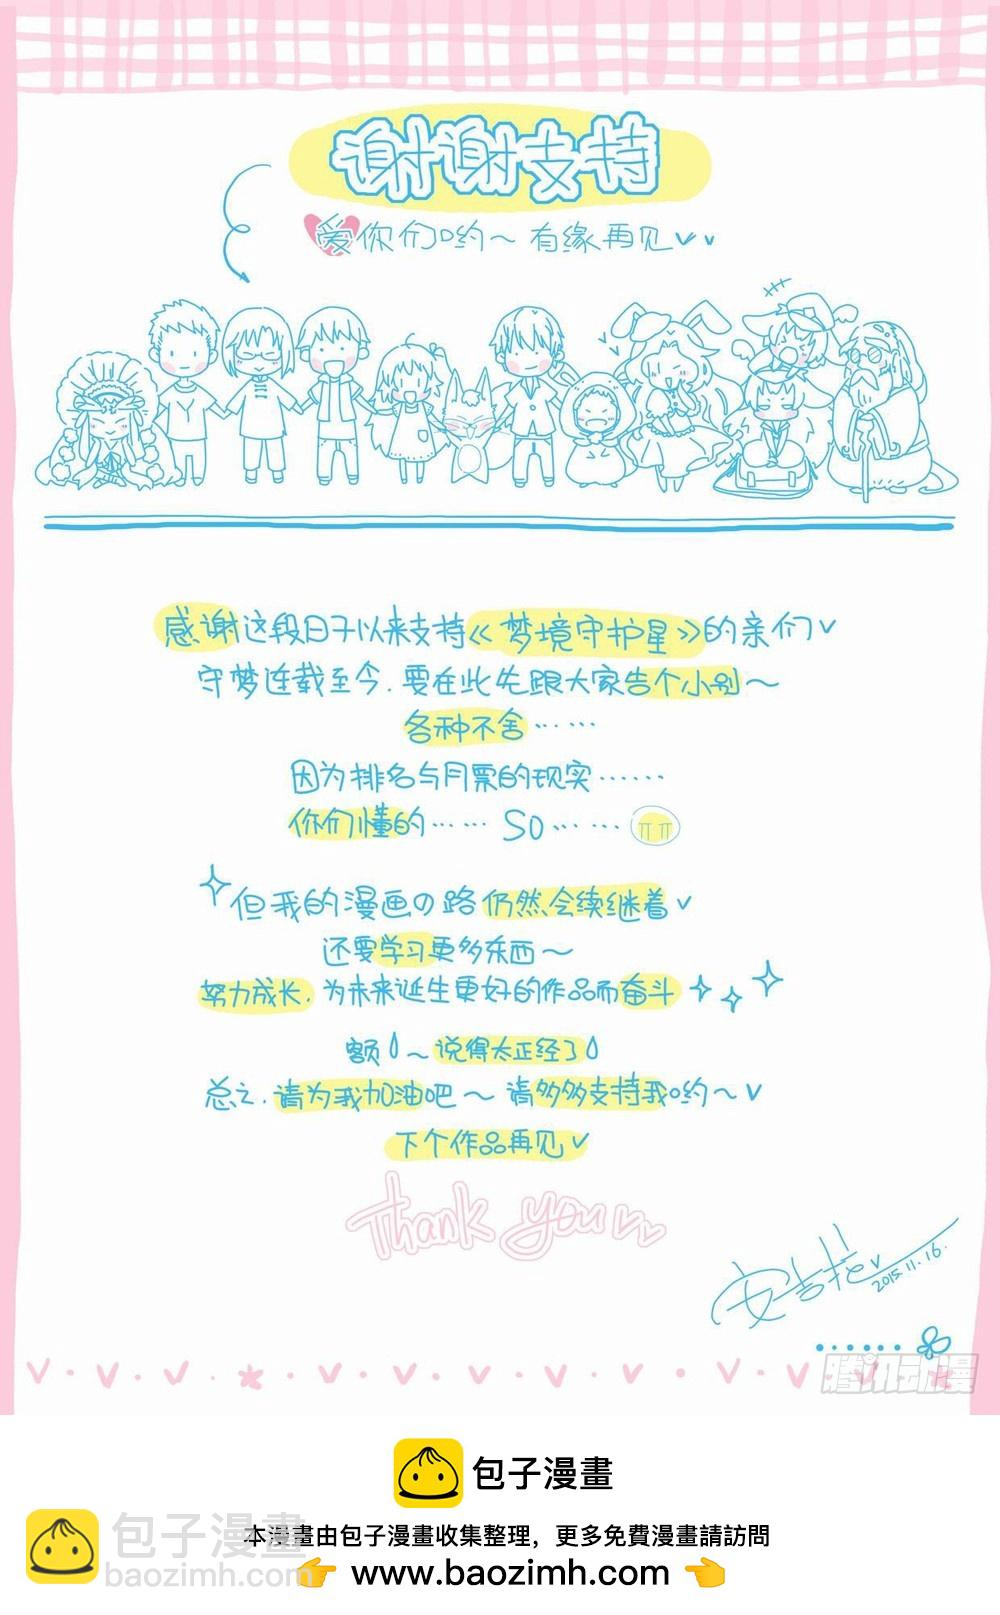 谢谢支持
爱你们哟~ 有缘再见
感谢这段日子以来支持《梦境守护星》的亲们
守梦连载至今.要在此先跟大家告个小别~
各种不舍……
因为排名与月票的现实……
你们懂的…… SO…… ㅠㅠ
但我的漫画の路仍然会续继着
还要学习更多东西~
努力成长.为未来诞生更好的作品而奋斗
额~说得太正经了
总之.请为我加油吧~ 请多多支持我哟~
下个作品再见
Thank you
2015.11.16.
腾讯动漫
包子漫畫
本漫畫由包子漫畫收集整理，更多免費漫畫請訪問
👉 www.baozimh.com 👈
包子漫畫
baozimh.com